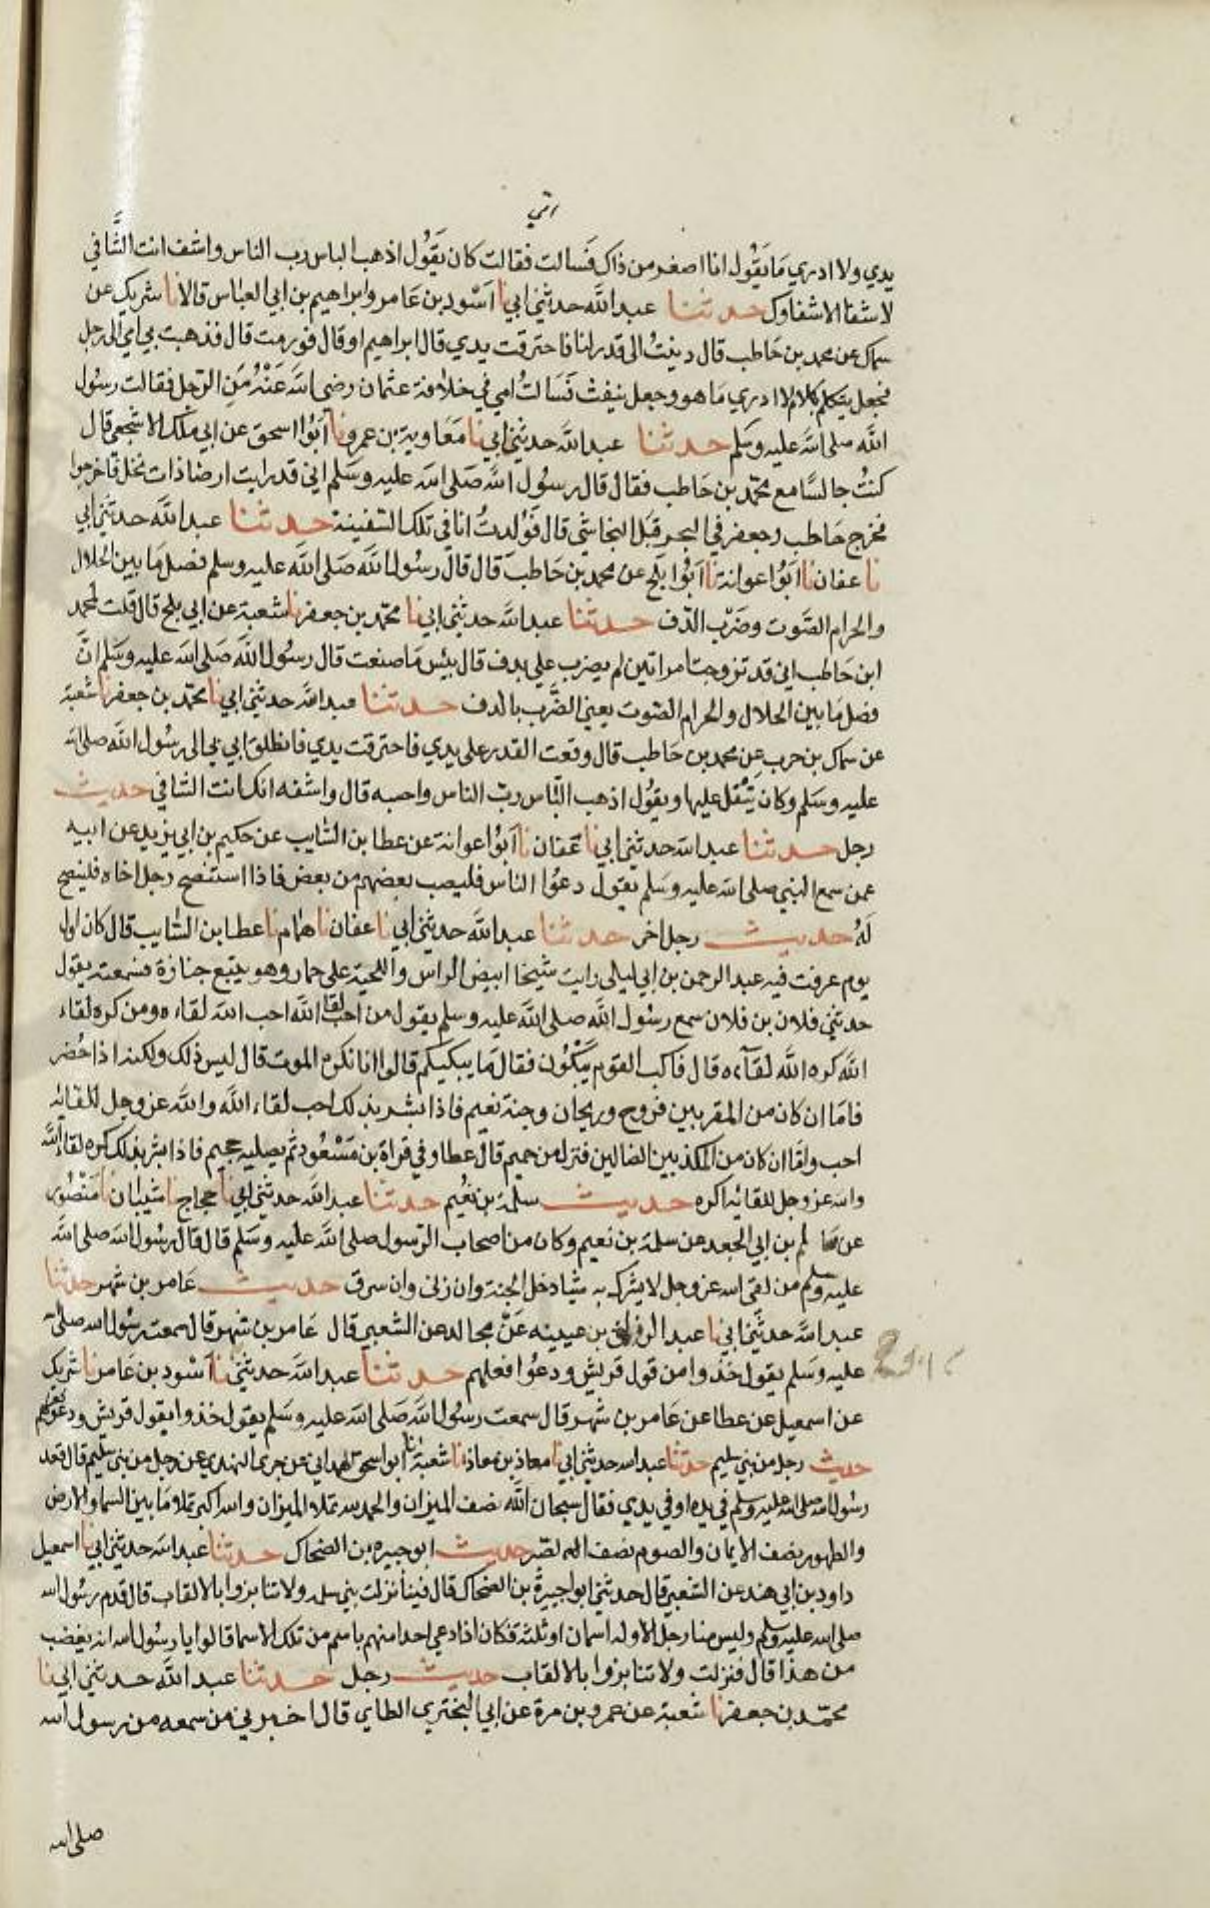 يدي ولا ادري ما يقول انا اصغر من ذاك فسالت فقالت كان يقول اذهب الباس رب الناس واشف انت الشافي
لا شفا الا شفاوك حدثنا عبد الله حدثني ابي نا اسود بن عامر وابراهيم بن ابي العباس قالا نا شريك عن
سماك عن محمد بن حاطب قال دنيت الى قدر لنا فاحترقت يدي قال ابراهيم او قال فورمت قال فذهبت بي امي الى رجل
فجعل يتكلم بكلام لا ادري ما هو وجعل ينفث فسالت امي في خلافة عثمان رضي الله عنه من الرجل فقالت رسول
الله صلى الله عليه وسلم حدثنا عبد الله حدثني ابي نا معاوية بن عمرو نا ابوا اسحق عن ابي ملك الاشجعي قال
كنت جالسا مع محمد بن حاطب فقال قال رسول الله صلى الله عليه وسلم اني قد رايت ارضا ذات نخل فاخرجوا
فخرج حاطب وجعفر في البحر قبل النجاشي قال فولدت انا في تلك السفينة حدثنا عبد الله حدثني ابي
نا عفان نا ابوا عوانة نا ابوا بلج عن محمد بن حاطب قال قال رسول الله صلى الله عليه وسلم فصل ما بين الحلال
والحرام الصوت وضرب الدف حدثنا عبد الله حدثني ابي نا محمد بن جعفر نا شعبة عن ابي بلج قال قلت لمحمد
ابن حاطب اني قد تزوجت امراتين لم يضرب علي بدف قال بيس ما صنعت قال رسول الله صلى الله عليه وسلم ان
فصل ما بين الحلال والحرام الصوت يعني الضرب بالدف حدثنا عبد الله حدثني ابي نا محمد بن جعفر نا شعبة
عن سماك بن حرب عن محمد بن حاطب قال وقعت القدر على يدي فاحترقت يدي فانطلق ابي بي الى رسول الله صلى الله
عليه وسلم وكان يتفل عليها ويقول اذهب الباس رب الناس واحسبه قال واشفه انك انت الشافي حديث
رجل حدثنا عبد الله حدثني ابي نا عفان نا ابوا عوانة عن عطا بن السايب عن حكيم بن ابي يزيد عن ابيه
عمن سمع النبي صلى الله عليه وسلم يقول دعوا الناس فليصب بعضهم من بعض فاذا استنصح رجل اخاه فلينصح
له حديث رجل اخر حدثنا عبد الله حدثني ابي نا عفان نا همام نا عطا بن السايب قال كان اول
يوم عرفت فيه عبد الرحمن بن ابي ليلى رايت شيخا ابيض الراس واللحية على حمار وهو يتبع جنازة فسمعته يقول
حدثني فلان بن فلان سمع رسول الله صلى الله عليه وسلم يقول من احب لقا الله احب الله لقاءه ومن كره لقاء
الله كره الله لقآءه قال فاكب القوم يبكون فقال ما يبكيكم قالوا انا نكره الموت قال ليس ذلك ولكنه اذا حضر
فاما ان كان من المقربين فروح وريحان وجنة نعيم فاذا بشر بذلك احب لقاء الله والله عز وجل للقائه
احب واما ان كان من المكذبين الضالين فنزل من حميم قال عطا وفي قراة بن مسعود ثم يصليه جحيم فاذا بشر بذلك كره لقاء الله
والله عز وجل للقائه اكره حديث سلمة بن نعيم حدثنا عبد الله حدثني ابي نا حجاج نا شيبان نا منصور
عن سالم بن ابي الجعد عن سلمة بن نعيم وكان من اصحاب الرسول صلى الله عليه وسلم قال قال رسول الله صلى الله
عليه وسلم من لقي الله عز وجل لا يشرك به شيا دخل الجنة وان زنى وان سرق حديث عامر بن شهر حدثنا
عبد الله حدثني ابي نا عبد الرزاق بن عيينه عن مجالد عن الشعبي قال عامر بن شهر قال سمعت رسول الله صلى الله
عليه وسلم يقول خذوا من قول قريش ودعوا فعلهم حدثنا عبد الله حدثني نا اسود بن عامر نا شريك
عن اسمعيل عن عطا عن عامر بن شهر قال سمعت رسول الله صلى الله عليه وسلم يقول خذوا بقول قريش ودعوا فعلهم
حديث رجل من بني سليم حدثنا عبد الله حدثني ابي نا معاذ بن معاذ نا شعبة نا ابو اسحق الهمداني عن جري النهدي عن رجل من بني سليم قال عقد
رسول الله صلى الله عليه وسلم في يده او في يدي فقال سبحان الله نصف الميزان والحمد لله تملا الميزان والله اكبر تملا ما بين السما والارض
والطهور نصف الايمان والصوم نصف الصبر حديث ابو جبيره بن الضحاك حدثنا عبد الله حدثني ابي نا اسمعيل
داود بن ابي هند عن الشعبي قال حدثني ابوا جبيرة بن الضحاك قال فينا نزلت بني سلمه ولا تنابزوا بالالقاب قال قدم رسول الله
صلى الله عليه وسلم وليس منا رجل الا وله اسمان او ثلثة فكان اذا دعي احد منهم باسم من تلك الاسما قالوا يا رسول الله انه يغضب
من هذا قال فنزلت ولا تنابزوا بالالقاب حديث رجل حدثنا عبد الله حدثني ابي نا
محمد بن جعفر نا شعبة عن عمرو بن مرة عن ابي البختري الطاي قال اخبرني من سمعه من رسول الله
صلى الله